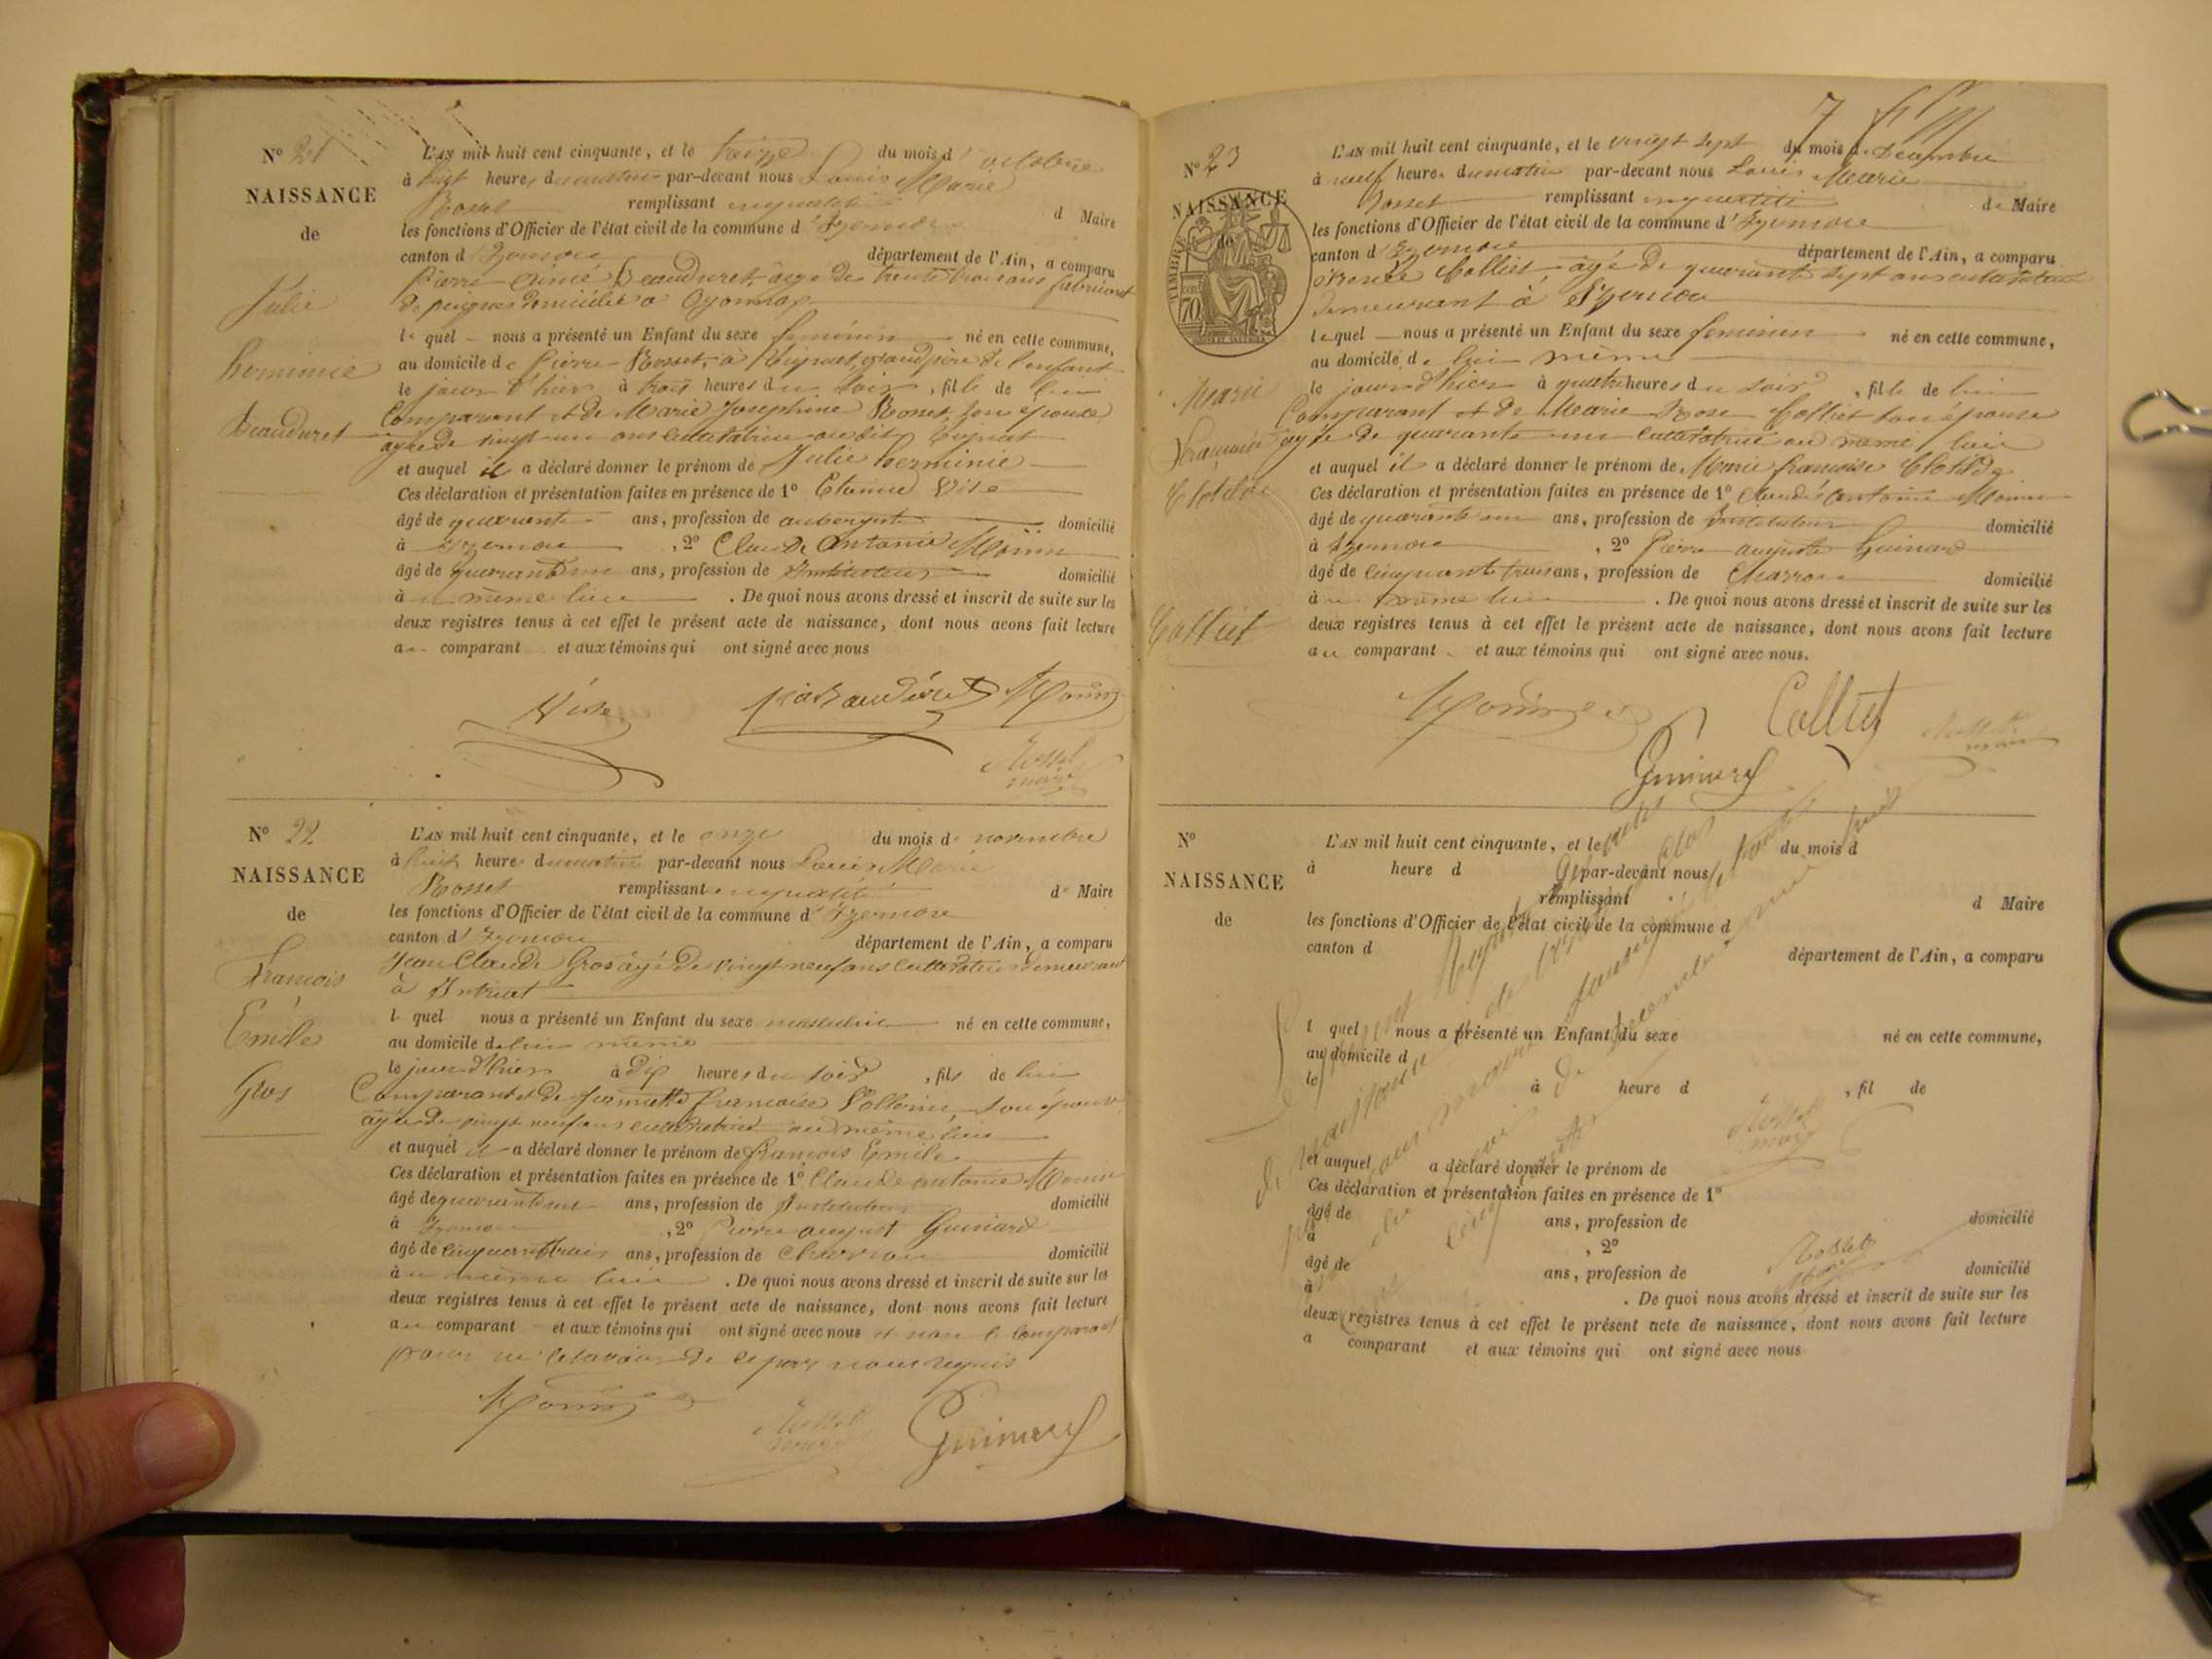 N° 21
NAISSANCE
de
Julie
herminie
Beauduret
L'AN mil huit cent cinquante, et le treize du mois d'octobre
à huit heures du matin par-devant nous Louis Marie
Rosset remplissant en qualité d Maire
les fonctions d'Officier de l'état civil de la commune d'Izernore
canton d'Izernore département de l'Ain, a comparu
Pierre aimé Beauduret âgé de trente trois ans fabricant
de peignes domicilié à Oyonnax
lequel nous a présenté un Enfant du sexe feminin né en cette commune,
au domicile de Pierre Rosset, à grand père de l'enfant
le jour d'hier à trois heures du soir, fille de lui
Comparant et de Marie Josephine Rosset, son épouse
agée de vingt un ans cultivatrice audit
et auquel il a déclaré donner le prénom de Julie herminie
Ces déclaration et présentation faites en présence de 1°
âgé de quarante ans, profession de aubergiste domicilié
à Izernore, 2° Claude Antoine Monin
âgé de quarante un ans, profession de Instituteur domicilié
au même lieu. De quoi nous avons dressé et inscrit de suite sur les
deux registres tenus à cet effet le présent acte de naissance, dont nous avons fait lecture
au comparant et aux témoins qui ont signé avec nous
Monin
Rosset
maire
N° 22
NAISSANCE
de
Francois
Emile
Gros
L'AN mil huit cent cinquante, et le onze du mois de novembre
à huit heures du matin par-devant nous Louis Marie
Rosset remplissant en qualité de Maire
les fonctions d'Officier de l'état civil de la commune d'Izernore
canton d'Izernore département de l'Ain, a comparu
Jean Claude Gros âgé de vingt neuf ans cultivateur demeurant
à Intriat
l quel nous a présenté un Enfant du sexe masculin né en cette commune,
au domicile de lui même
le jour d'hier à dix heures du soir, fils de lui
Comparant et de francoise son épouse
agée de vingt neuf ans cultivatrice au même lieu
et auquel il a déclaré donner le prénom de francois Emile
Ces déclaration et présentation faites en présence de 1° Claude antoine Monin
âgé de quarante un ans, profession de Instituteur domicilié
à Izernore, 2° Pierre august Guinard
âgé de cinquante trois ans, profession de Charron domicilié
au même lieu. De quoi nous avons dressé et inscrit de suite sur les
deux registres tenus à cet effet le présent acte de naissance, dont nous avons fait lecture
au comparant et aux témoins qui ont signé avec nous et non le comparant
pour ne le savoir de ce par nous requis
Monin
Rosset
maire
Guinard
7
N° 23
NAISSANCE
de
TIMBRE
70
Marie
Francoise
Clotilde
Colliet
L'AN mil huit cent cinquante, et le vingt sept du mois de Decembre
à neuf heures du matin par-devant nous Louis Marie
Rosset remplissant en qualité de Maire
les fonctions d'Officier de l'état civil de la commune d'Izernore
canton d'Izernore département de l'Ain, a comparu
Colliet âgé de quarante sept ans cultivateur
demeurant à Izernore
lequel nous a présenté un Enfant du sexe feminin né en cette commune,
au domicile de lui même
le jour d'hier à quatre heures du soir, fille de lui
Comparant et de Marie Rose Colliet son épouse
agée de quarante un cultivatrice au même lieu
et auquel il a déclaré donner le prénom de Marie francoise Clotilde
Ces déclaration et présentation faites en présence de 1° Claude antoine Monin
âgé de quarante un ans, profession de Instituteur domicilié
à Izernore, 2° Pierre auguste Guinard
âgé de cinquante trois ans, profession de Charron domicilié
au même lieu. De quoi nous avons dressé et inscrit de suite sur les
deux registres tenus à cet effet le présent acte de naissance, dont nous avons fait lecture
au comparant et aux témoins qui ont signé avec nous.
Monin
Colliet
Rosset
maire
Guinard
N°
NAISSANCE
de
L'AN mil huit cent cinquante, et le du mois d
à heure d par-devant nous
remplissant d Maire
les fonctions d'Officier de l'état civil de la commune d
canton d département de l'Ain, a comparu
l quel nous a présenté un Enfant du sexe né en cette commune,
au domicile d
le à heure d , fil de
Rosset
maire
et auquel a déclaré donner le prénom de
Ces déclaration et présentation faites en présence de 1°
âgé de ans, profession de domicilié
à , 2°
âgé de ans, profession de domicilié
à . De quoi nous avons dressé et inscrit de suite sur les
deux registres tenus à cet effet le présent acte de naissance, dont nous avons fait lecture
a comparant et aux témoins qui ont signé avec nous
Rosset